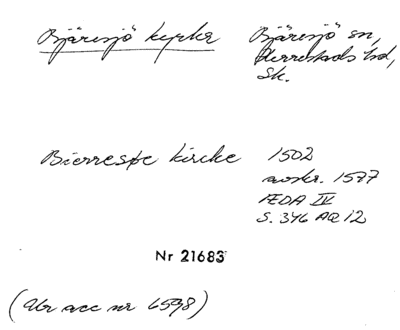 Bjäresjö kyrka Bjäresjö sn,
Herrestads hd,
Sk.
Bierresøe kircke 1502
avskr. 1577
ÆDA IV
S. 346 AQ 12
Nr 21683
(Ur acc nr 6598)